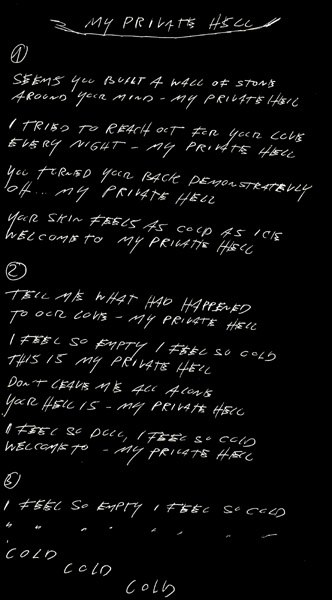 MY PRIVATE HELL
1
SEEMS YOU BUILT A WALL OF STONE
AROUND YOUR MIND - MY PRIVATE HELL
I TRIED TO REACH OUT FOR YOUR LOVE
EVERY NIGHT - MY PRIVATE HELL
YOU TURNED YOUR BACK DEMONSTRATEVLY
OH... MY PRIVATE HELL
YOUR SKIN FEELS AS COLD AS ICE
WELCOME TO MY PRIVATE HELL
2
TELL ME WHAT HAD HAPPENED
TO OUR LOVE - MY PRIVATE HELL
I FEEL SO EMPTY I FEEL SO COLD
THIS IS MY PRIVATE HELL
DON'T LEAVE ME ALL ALONE
YOUR HELL IS - MY PRIVATE HELL
I FEEL SO DULL, I FEEL SO COLD
WELCOME TO - MY PRIVATE HELL
3
I FEEL SO EMPTY I FEEL SO COLD
" " " " " " "
COLD
COLD
COLD